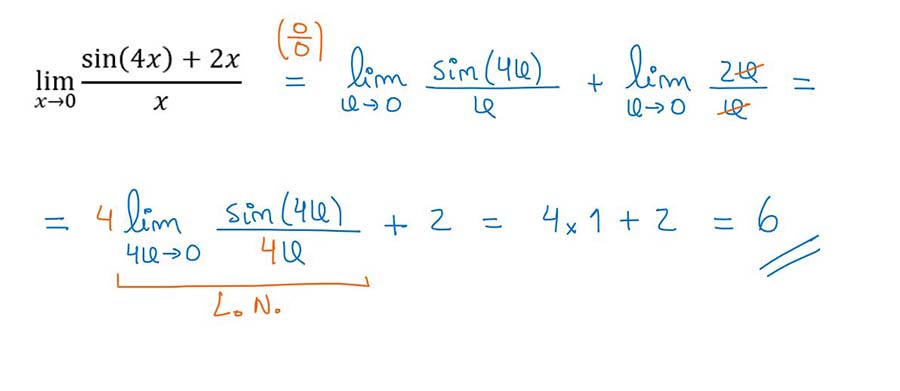 lim x→0 (sin(4x) + 2x)/x (0/0) = lim x→0 sin(4x)/x + lim x→0 2x/x =
= 4 lim 4x→0 sin(4x)/4x + 2 = 4 × 1 + 2 = 6
L. N.